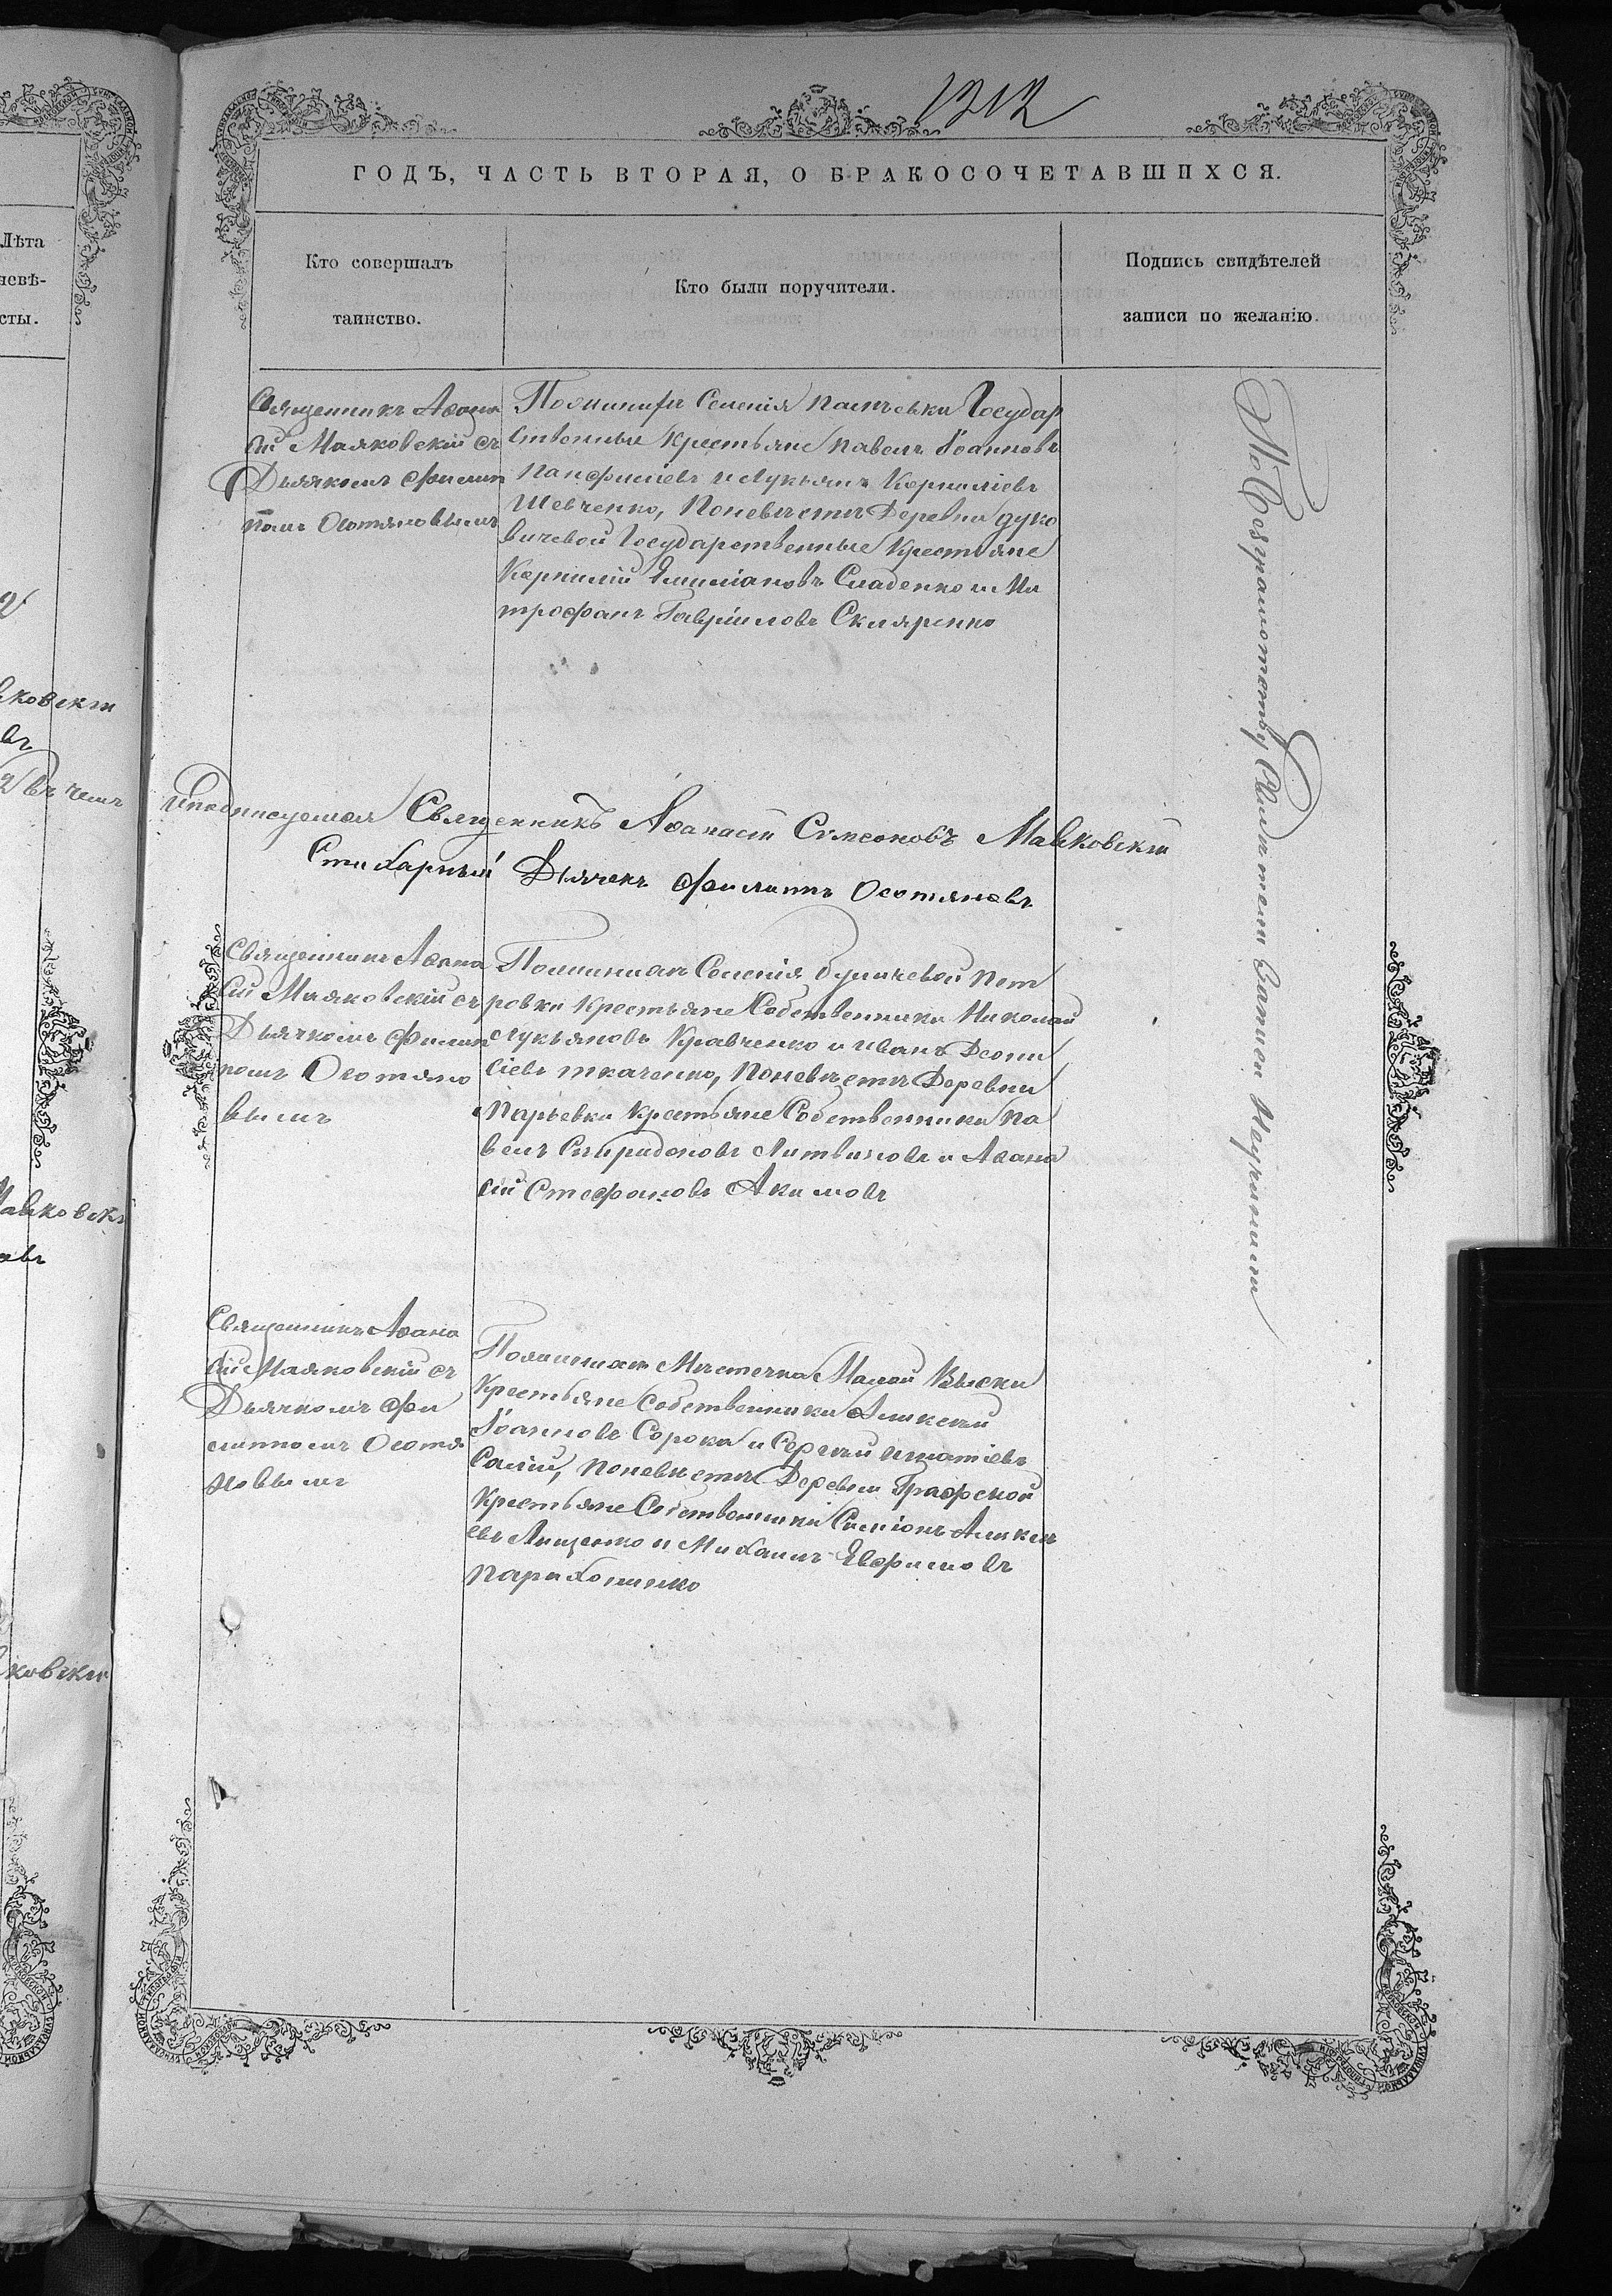 1212
ГОДЪ, ЧАСТЬ ВТОРАЯ, О БРАКОСОЧЕТАВШИХСЯ.
Лѣта
невѣ-
сты.
Кто совершалъ
таинство.
Кто были поручители.
Подпись свидѣтелей
записи по желанію.
Священникъ Аѳана
сій Маяковскій съ
Дьячкомъ Филип
помъ Осотяновымъ
По женихѣ Селенія Государ
ственные Крестьяне Павелъ Іоанновъ
Панфиліевъ и Лукьянъ Корниліевъ
Шевченко, По невѣстѣ Деревни Дуко
вичевой Государственные Крестьяне
Корнилій Емиліановъ Сладенко и Ми
трофанъ Гавріиловъ Скляренко
По безграмотству Свидѣтели записи не учинили
вковскій
въ
въ чемъ
и подписуемся Священникъ Аѳанасій Симеоновъ Маяковскій
Стихарный Дьячекъ Филиппъ Осотяновъ
Священникъ Аѳана
сій Маяковскій съ
Дьячкомъ Филип
помъ Осотяно
вымъ
По женихѣ Селенія Пет
ровки Крестьяне Собственники Николай
Лукьяновъ Кравченко и Иванъ Деони
сіевъ Ткаченко, По невѣстѣ Деревни
Марьевки Крестьяне Собственники Па
велъ Спиридоновъ Литвиновъ и Аѳана
сій Стефановъ Акимовъ
Священникъ Аѳана
сій Маяковскій съ
Дьячкомъ Фи
липпомъ Осотя
новымъ
По женихѣ Мѣстечка Малой Выски
Крестьяне Собственники Алексѣй
Іоанновъ Сорока и Сергѣй Игнатіевъ
Салій, По невѣстѣ Деревни Графской
Крестьяне Собственники Симіонъ Алексѣ
евъ Лищенко и Михаилъ Евфимовъ
Парахоненко
ковскій